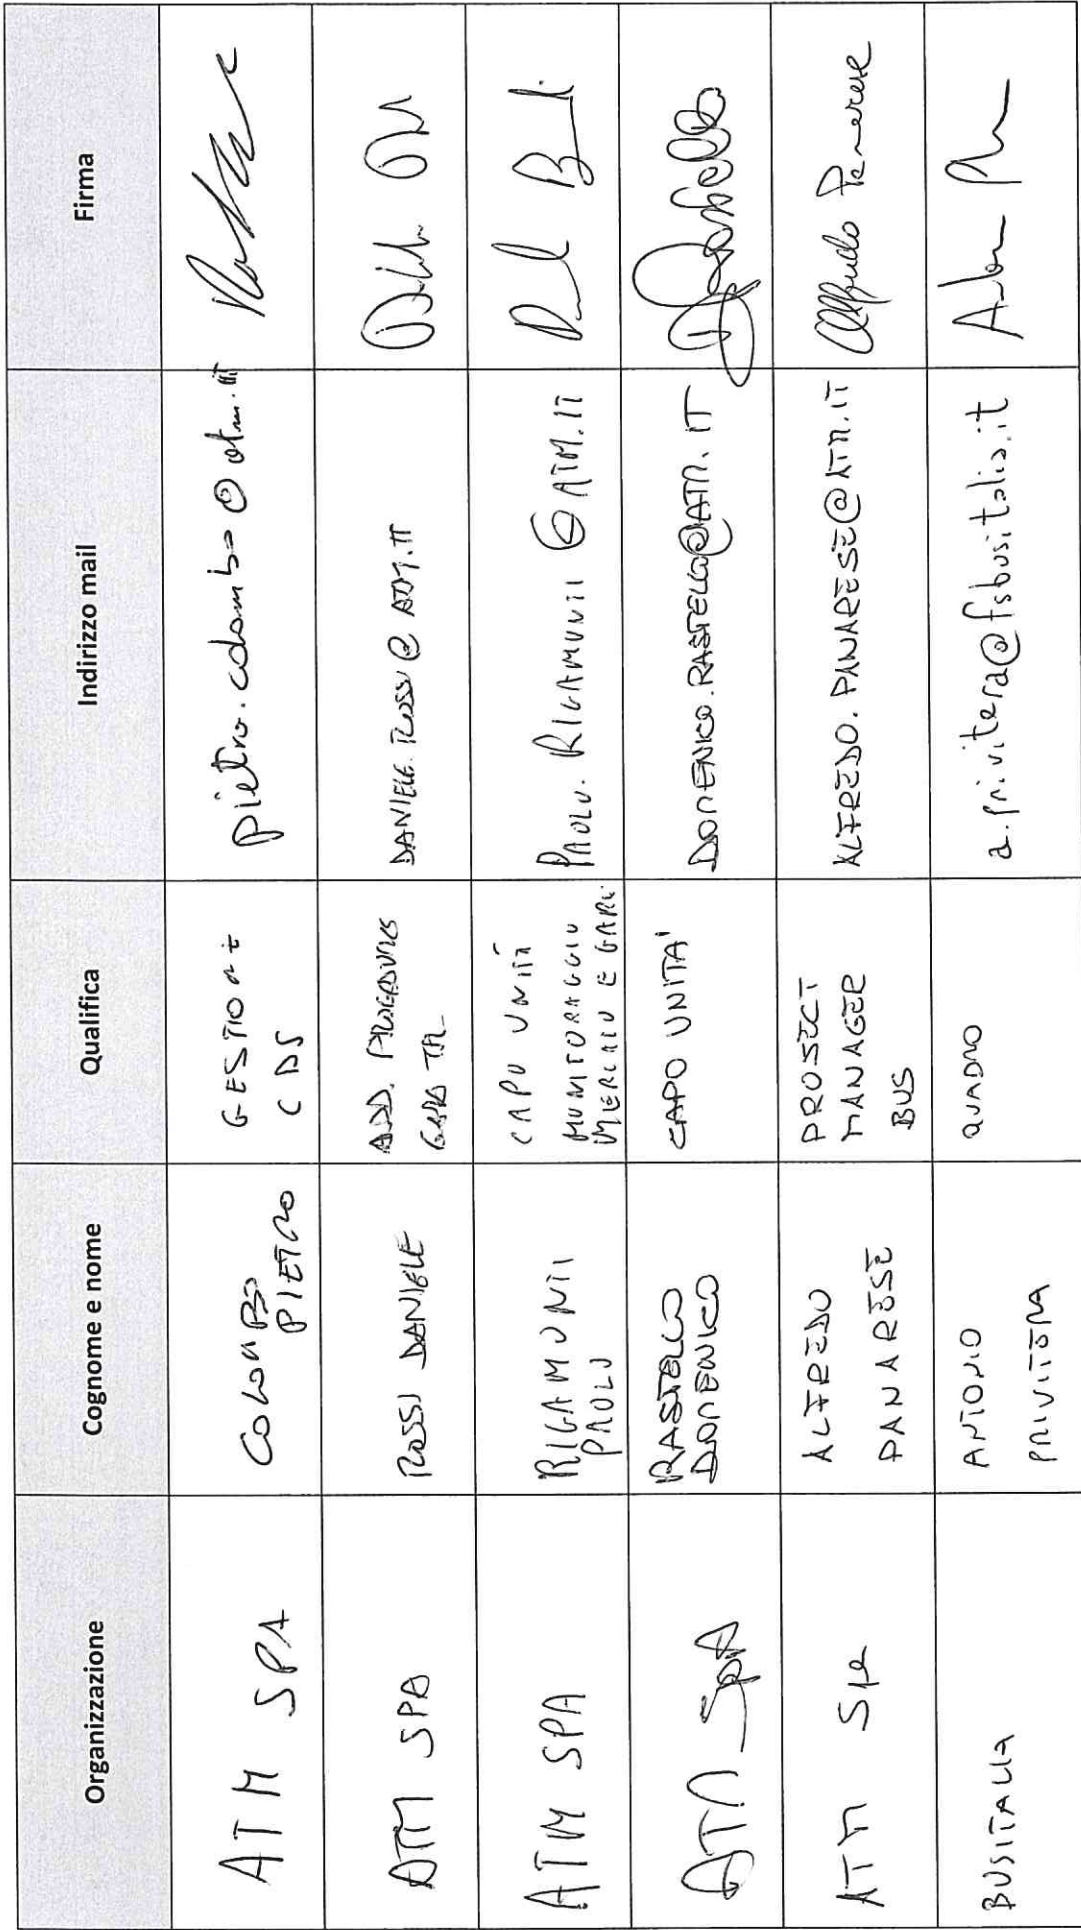 Organizzazione Cognome e nome Qualifica Indirizzo mail Firma
ATM SPA
COLOMBO
PIETRO
GESTIONE
CDS
pietro.colombo@atm.it
ATM SPA
ROSSI DANIELE
ADD. PROCEDURES
GARA TPL
DANIELE.ROSSI@ATM.IT
ATM SPA
RIGAMONTI
PAOLO
CAPO UNITÀ
MONITORAGGIO
MERCATO E GARE
PAOLO.RIGAMONTI@ATM.IT
ATM SpA
RASTELLO
DOMENICO
CAPO UNITA'
DOMENICO.RASTELLO@ATM.IT
Rastello
ATM SpA
ALFREDO
PANARESE
PROJECT
MANAGER
BUS
ALFREDO.PANARESE@ATM.IT
Alfredo Panarese
BUSITALIA
ANTONIO
PRIVITERA
QUADRO
a.privitera@fsbusitalia.it